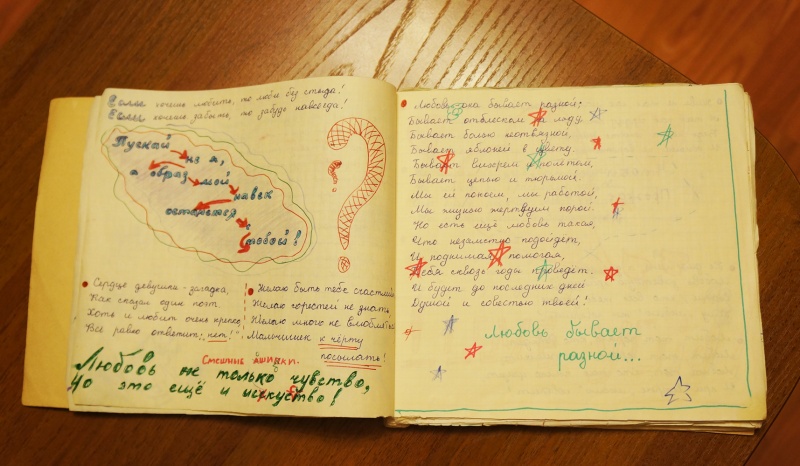 Если хочешь любить, то люби без стыда!
Если хочешь забыть, то забудь навсегда!
Пускай
не я,
а образ мой
навек
останется
с
тобой!
Сердце девушки - загадка,
Как сказал один поэт.
Хоть и любит очень крепко,
Все равно ответит: „нет!"
Желаю быть тебе счастливой
Желаю горестей не знать
Желаю много не влюбляться
Мальчишек к черту
посылать!
Смешные ашипки.
Любовь не только чувство,
Но это ещё и искуство!
Любовь она бывает разной:
Бывает отблеском на льду.
Бывает болью неотвязной,
Бывает яблоней в цвету.
Бывает вихрем
Бывает цепью и тюрьмой.
Мы ей поком, мы работой,
Мы жизнью жертвуем порой.
Но есть ещё любовь такая,
Что незаметно подойдет,
И поднимая, помогая,
Тебя сквозь годы проведёт.
И будет до последних дней
Душой и совестью твоей!
Любовь бывает
разной...